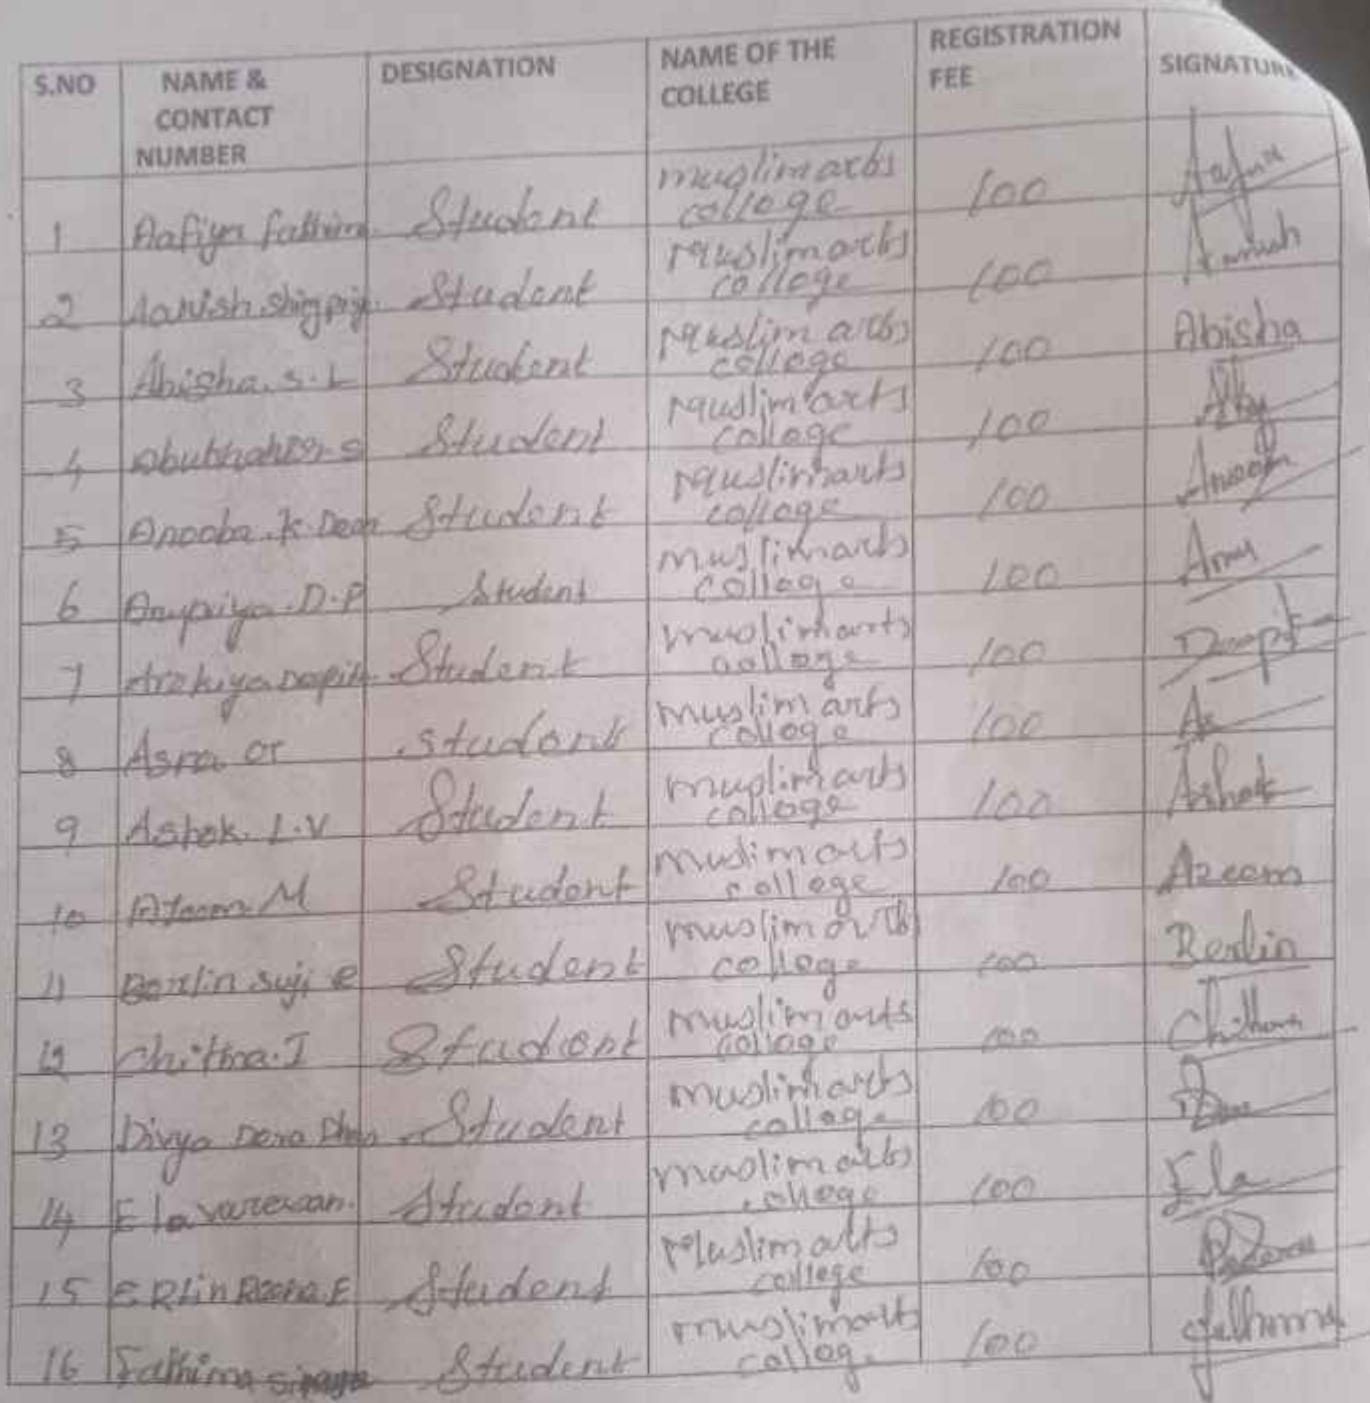 S.NO NAME & CONTACT NUMBER DESIGNATION NAME OF THE COLLEGE REGISTRATION FEE SIGNATURE
1 Aafiya fathima Student muslim arts college 100
2 Student muslim arts college 100
3 Abisha. S. L Student muslim arts college 100 Abisha
4 Student muslim arts college 100
5 Anooba. K. Student muslim arts college 100
6 Anupriya. D. P Student muslim arts college 100 Anu
7 Student muslim arts college 100
8 Asra Student muslim arts college 100 As
9 Ashok. L. V Student muslim arts college 100 Ashok
10 Azeem. M Student muslim arts college 100 Azeem
11 Berlin suji Student muslim arts college 100 Berlin
12 Chithra. I Student muslim arts college 100
13 Divya Student muslim arts college 100
14 Elavarasan. Student muslim arts college 100 Ela
15 ERlin E Student muslim arts college 100
16 Fathima Student muslim arts college 100 fathima